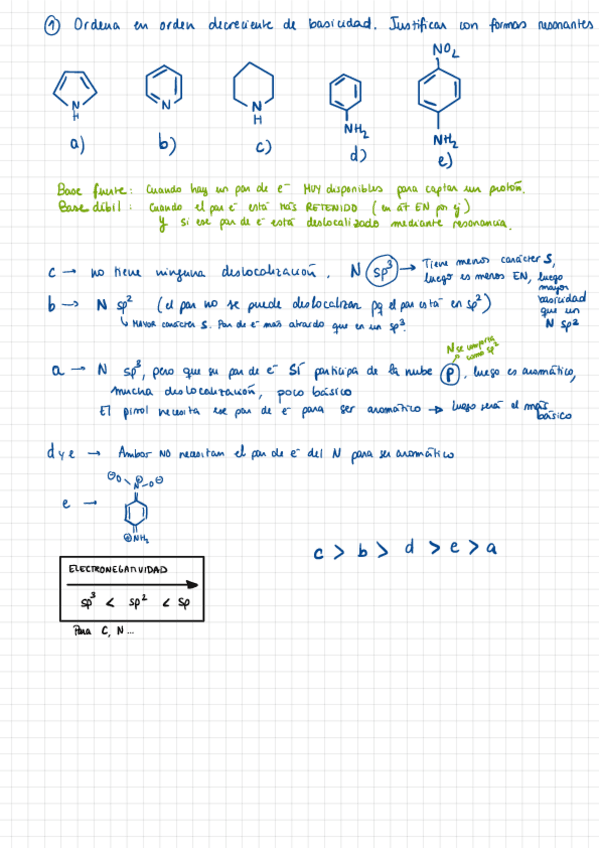 ① Ordena en orden decreciente de basicidad. Justifican con formas resonantes
NO₂
N
H
N
N
H
NH₂
NH₂
a)
b)
c)
d)
e)
Base fuerte: Cuando hay un par de e⁻ MUY disponibles para captar un protón.
Base débil: Cuando el par e⁻ está más RETENIDO (en át EN por ej)
Y si ese par de e⁻ está deslocalizado mediante resonancia.
c → no tiene ninguna deslocalización. N sp³ → Tiene menos carácter s,
luego es menos EN, luego
mayor
basicidad
que un
N sp2
b → N sp² (el par no se puede deslocalizar pq el par está en sp²)
↳ Mayor carácter s. Par de e⁻ más atraído que en un sp³.
N se comporta
como sp²
a → N sp³, pero que su par de e⁻ SÍ participa de la nube P, luego es aromático,
mucha deslocalización, poco básico
El pirrol necesita ese par de e⁻ para ser aromático → luego será el más
básico
d y e → Ambos NO necesitan el par de e⁻ del N para ser aromático
⊖O N⊕ O⊖
e →
⊕NH₂
c > b > d > e > a
ELECTRONEGATIVIDAD
sp³ < sp² < sp
Para C, N...